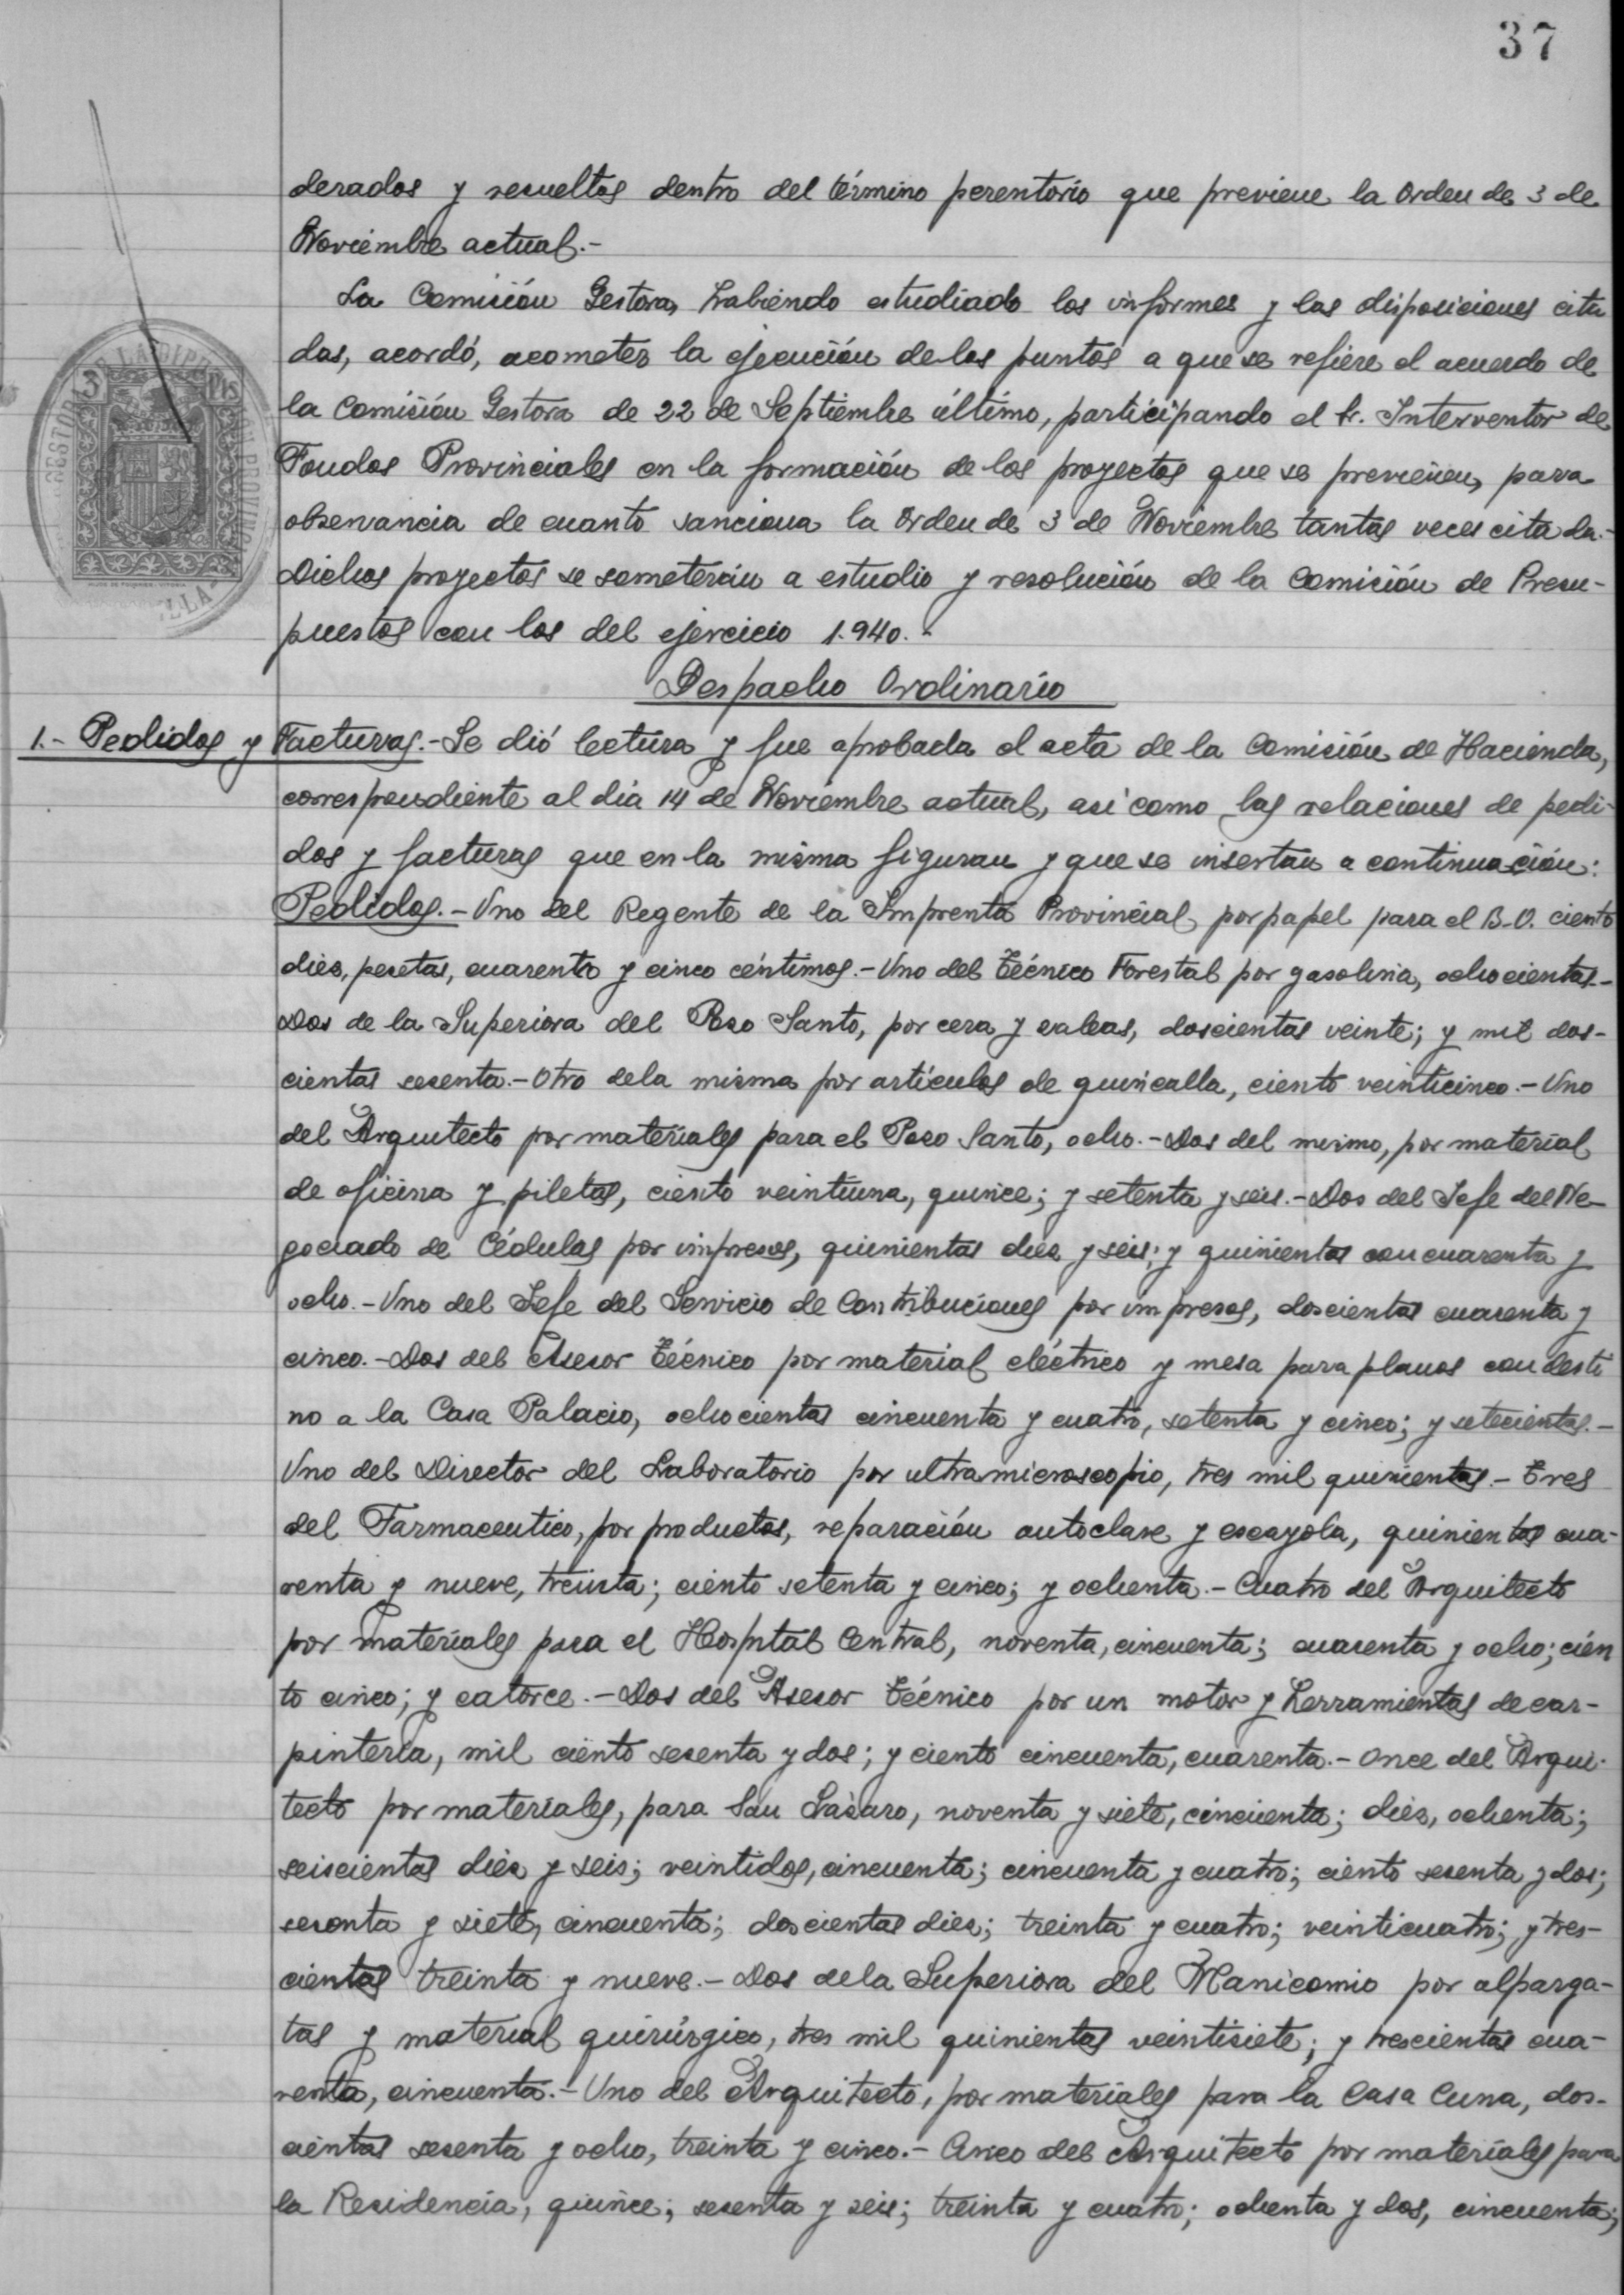 37
derados y resueltos dentro del término perentorio que previene la Orden de 3 de
Noviembre actual.-
La Comisión Gestora, habiendo estudiado los informes y las disposiciones cita
das, acordó, acometer la ejecución de los puntos a que se refiere el acuerdo de
la Comisión Gestora de 22 de Septiembre último, participando el Sr. Interventor de
Fondos Provinciales en la formación de los proyectos que se previenen, para
observancia de cuanto sanciona la Orden de 3 de Noviembre tantas veces citada.-
Dichos proyectos se someterán a estudio y resolución de la Comisión de Presu-
puestos con los del ejercicio 1.940.-
Despacho Ordinario
1.- Pedidos y Facturas.- Se dió lectura y fue aprobada el acta de la Comisión de Hacienda,
correspondiente al dia 14 de Noviembre actual, asi como las relaciones de pedi-
dos y facturas que en la misma figuran y que se insertan a continuación:
Pedidos.- Uno del Regente de la Imprenta Provincial, por papel para el B.O. ciento
diez, pesetas, cuarenta y cinco céntimos.- Uno del Técnico Forestal por gasolina, ochocientas.-
Dos de la Superiora del Pozo Santo, por cera y calzas, doscientas veinte; y mil dos-
cientas sesenta.- Otro de la misma por artículos de quincalla, ciento veinticinco.- Uno
del Arquitecto por materiales para el Pozo Santo, ocho.- Dos del mismo, por material
de oficina y piletas, ciento veintiuna, quince; y setenta y seis.- Dos del Jefe del Ne-
gociado de Cédulas por impresos, quinientas diez y seis; y quinientas con cuarenta y
ocho.- Uno del Jefe del Servicio de Contribuciones por impresos, doscientas cuarenta y
cinco.- Dos del Asesor Técnico por material eléctrico y mesa para planos con desti
no a la Casa Palacio, ochocientas cincuenta y cuatro, setenta y cinco; y setecientas.-
Uno del Director del Laboratorio por ultramicroscopio, tres mil quinientas.- Tres
del Farmaceutico, por productos, reparación autoclave y escayola, quinientas cua-
renta y nueve, treinta; ciento setenta y cinco; y ochenta.- Cuatro del Arquitecto
por materiales para el Hospital Central, noventa, cincuenta; cuarenta y ocho; cien
to cinco; y catorce.- Dos del Asesor Técnico por un motor y herramientas de car-
pintería, mil ciento sesenta y dos; y ciento cincuenta, cuarenta.- Once del Arqui-
tecto por materiales, para San Lázaro, noventa y siete, cincuenta; diez, ochenta;
seiscientas diez y seis; veintidos, cincuenta; cincuenta y cuatro; ciento sesenta y dos;
sesenta y siete, cincuenta; doscientas diez; treinta y cuatro; veinticuatro; y tres-
cientas treinta y nueve.- Dos de la Superiora del Manicomio por alparga-
tas y material quirúrgico, tres mil quinientas veintisiete; y trescientas cua-
renta, cincuenta.- Uno del Arquitecto, por materiales para la Casa Cuna, dos-
cientas sesenta y ocho, treinta y cinco.- Cinco del Arquitecto por materiales para
la Residencia, quince; sesenta y seis; treinta y cuatro; ochenta y dos, cincuenta;